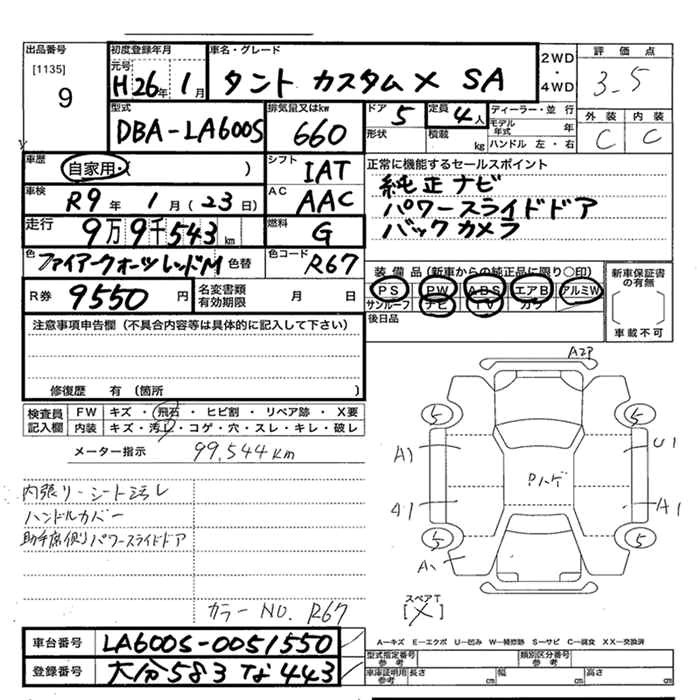 出品番号
[1135]
9
初度登録年月
元号
H26年 1月
車名・グレード
タント カスタムX SA
2WD
・
4WD
評価点
3-5
外装 内装
C C
型式
DBA-LA600S
排気量又はkw
660
ドア 5
形状
定員 4人
積載 kg
ディーラー・並行
モデル年式 年
ハンドル 左・右
車歴 自家用・( )
シフト
IAT
車検 R9年 1月(23日)
AC
AAC
走行 9万9千543km
燃料
G
色 ファイアークォーツレッドM 色替
色コード R67
R券 9550円
名変書類有効期限 月 日
正常に機能するセールスポイント
純正ナビ
パワースライドドア
バックカメラ
装備品(新車からの純正品に限り○印)
PS PW ABS エアB アルミW
サンルーフ ナビ TV カワ
後日品
新車保証書の有無
〔 〕
車載不可
注意事項申告欄(不具合内容等は具体的に記入して下さい)
修復歴 有(箇所 )
検査員記入欄
FW キズ・飛石・ヒビ割・リペア跡・X要
内装 キズ・汚レ・コゲ・穴・スレ・キレ・破レ
メーター指示 99,544km
内張り・シート汚レ
ハンドルカバー
助手席側パワースライドドア
カラーNO. R67
A1 U1
Pハゲ
A1
5 5
5 5
スペアT
[X]
A—キズ E—エクボ U—凹み W—補修跡 S—サビ C—腐食 XX—交換済
車台番号 LA600S-0051550
登録番号 大分583な443
型式指定番号参考
類別区分番号参考
車庫証明用参考 長さ cm 幅 cm 高さ cm